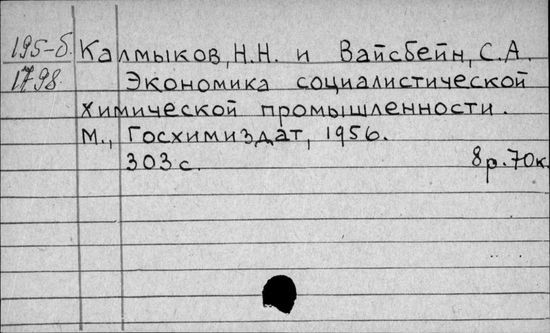 195-б Калмыков, Н.Н. и Вайсбейн, С.А.
1798 Экономика социалистической
химической промышленности.
М., Госхимиздат, 1956.
303 с. 8р. 70к.